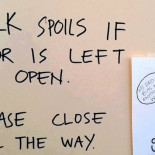 LK SPOILS IF
OR IS LEFT
OPEN.
ASE CLOSE
L THE WAY.